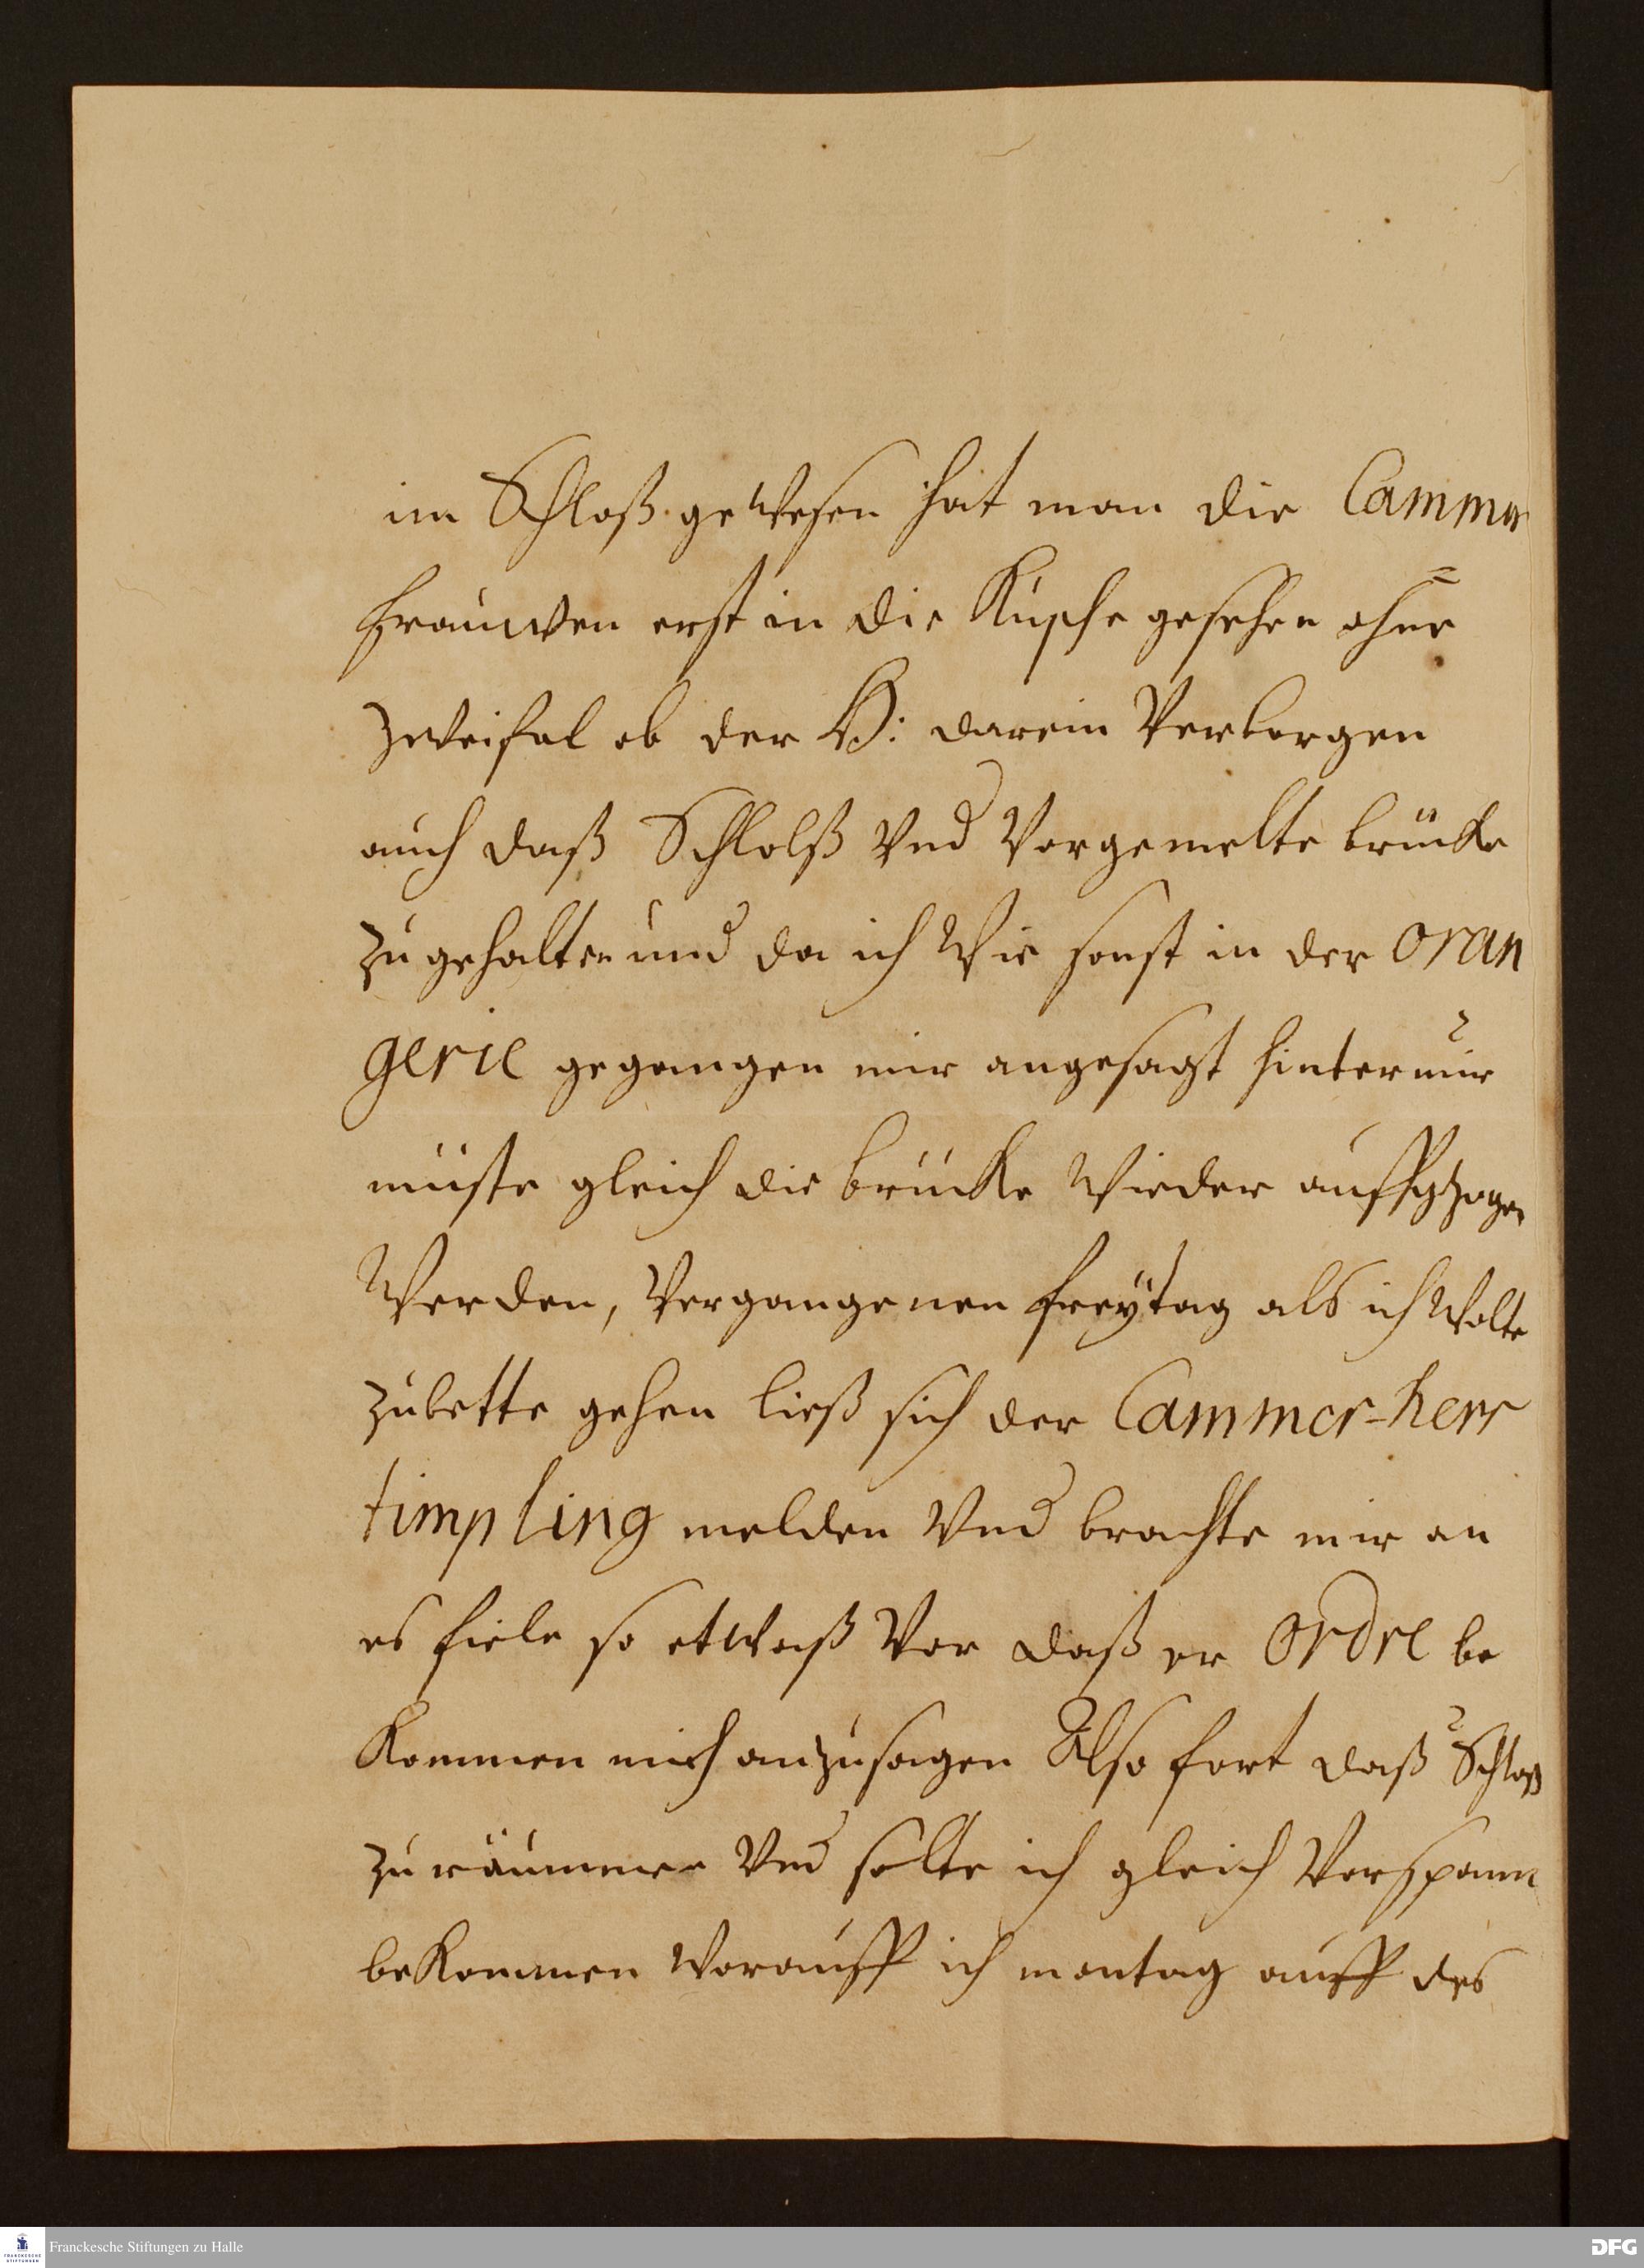 im Schloß gewesen hat man die Cammer
frauwen erst in die Kusche gesehen ohne
zweifal ob der H: darein Verborgen
auch daß Schlolß Vnd Vorgemelte brücke
zu gehalten und da ich Wie sonst in der oran
gerie gegangen mir angesagt hinter mir
müste gleich die brücke Wieder auffgzogen
Werden, Vergangenen freÿtag als ich Wolte
zubette gehen ließ sich der Cammer-herr
timpling melden Vnd brachte mir an
es fiele so etwaß Vor daß er Ordre be
kommen mich anzusagen Also fort daß Schloß
zu räummen Vnd solte ich gleich Vorspann
bekommen Worauff ich montag auff des
Franckesche Stiftungen zu Halle
FRANCKESCHE
STIFTUNGEN
DFG